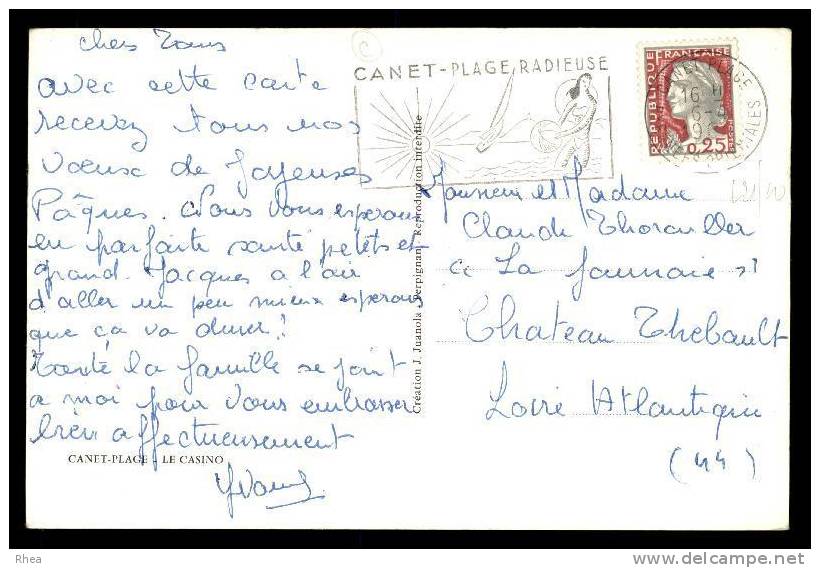 Chers Tous
avec cette carte
recevez tous nos
Vœux de Joyeuses
Pâques. Nous vous esperons
en parfaite santé petits et
grand. Jacques a l'air
d'aller un peu mieux esperons
que ça va durer!
Toute la famille se joint
a moi pour vous embrasser
bien affectueusement
CANET-PLAGE - LE CASINO
Création J. Juanola - Perpignan Reproduction interdite
CANET-PLAGE RADIEUSE
REPUBLIQUE FRANÇAISE
POSTES
0,25
CANET PLAGE
16 H
PYRENEES ORIENTALES
Monsieur et Madame
Claude
" La Jaunaie "
Chateau Thebault
Loire Atlantique
(44)
Rhea
www.delcampe.net